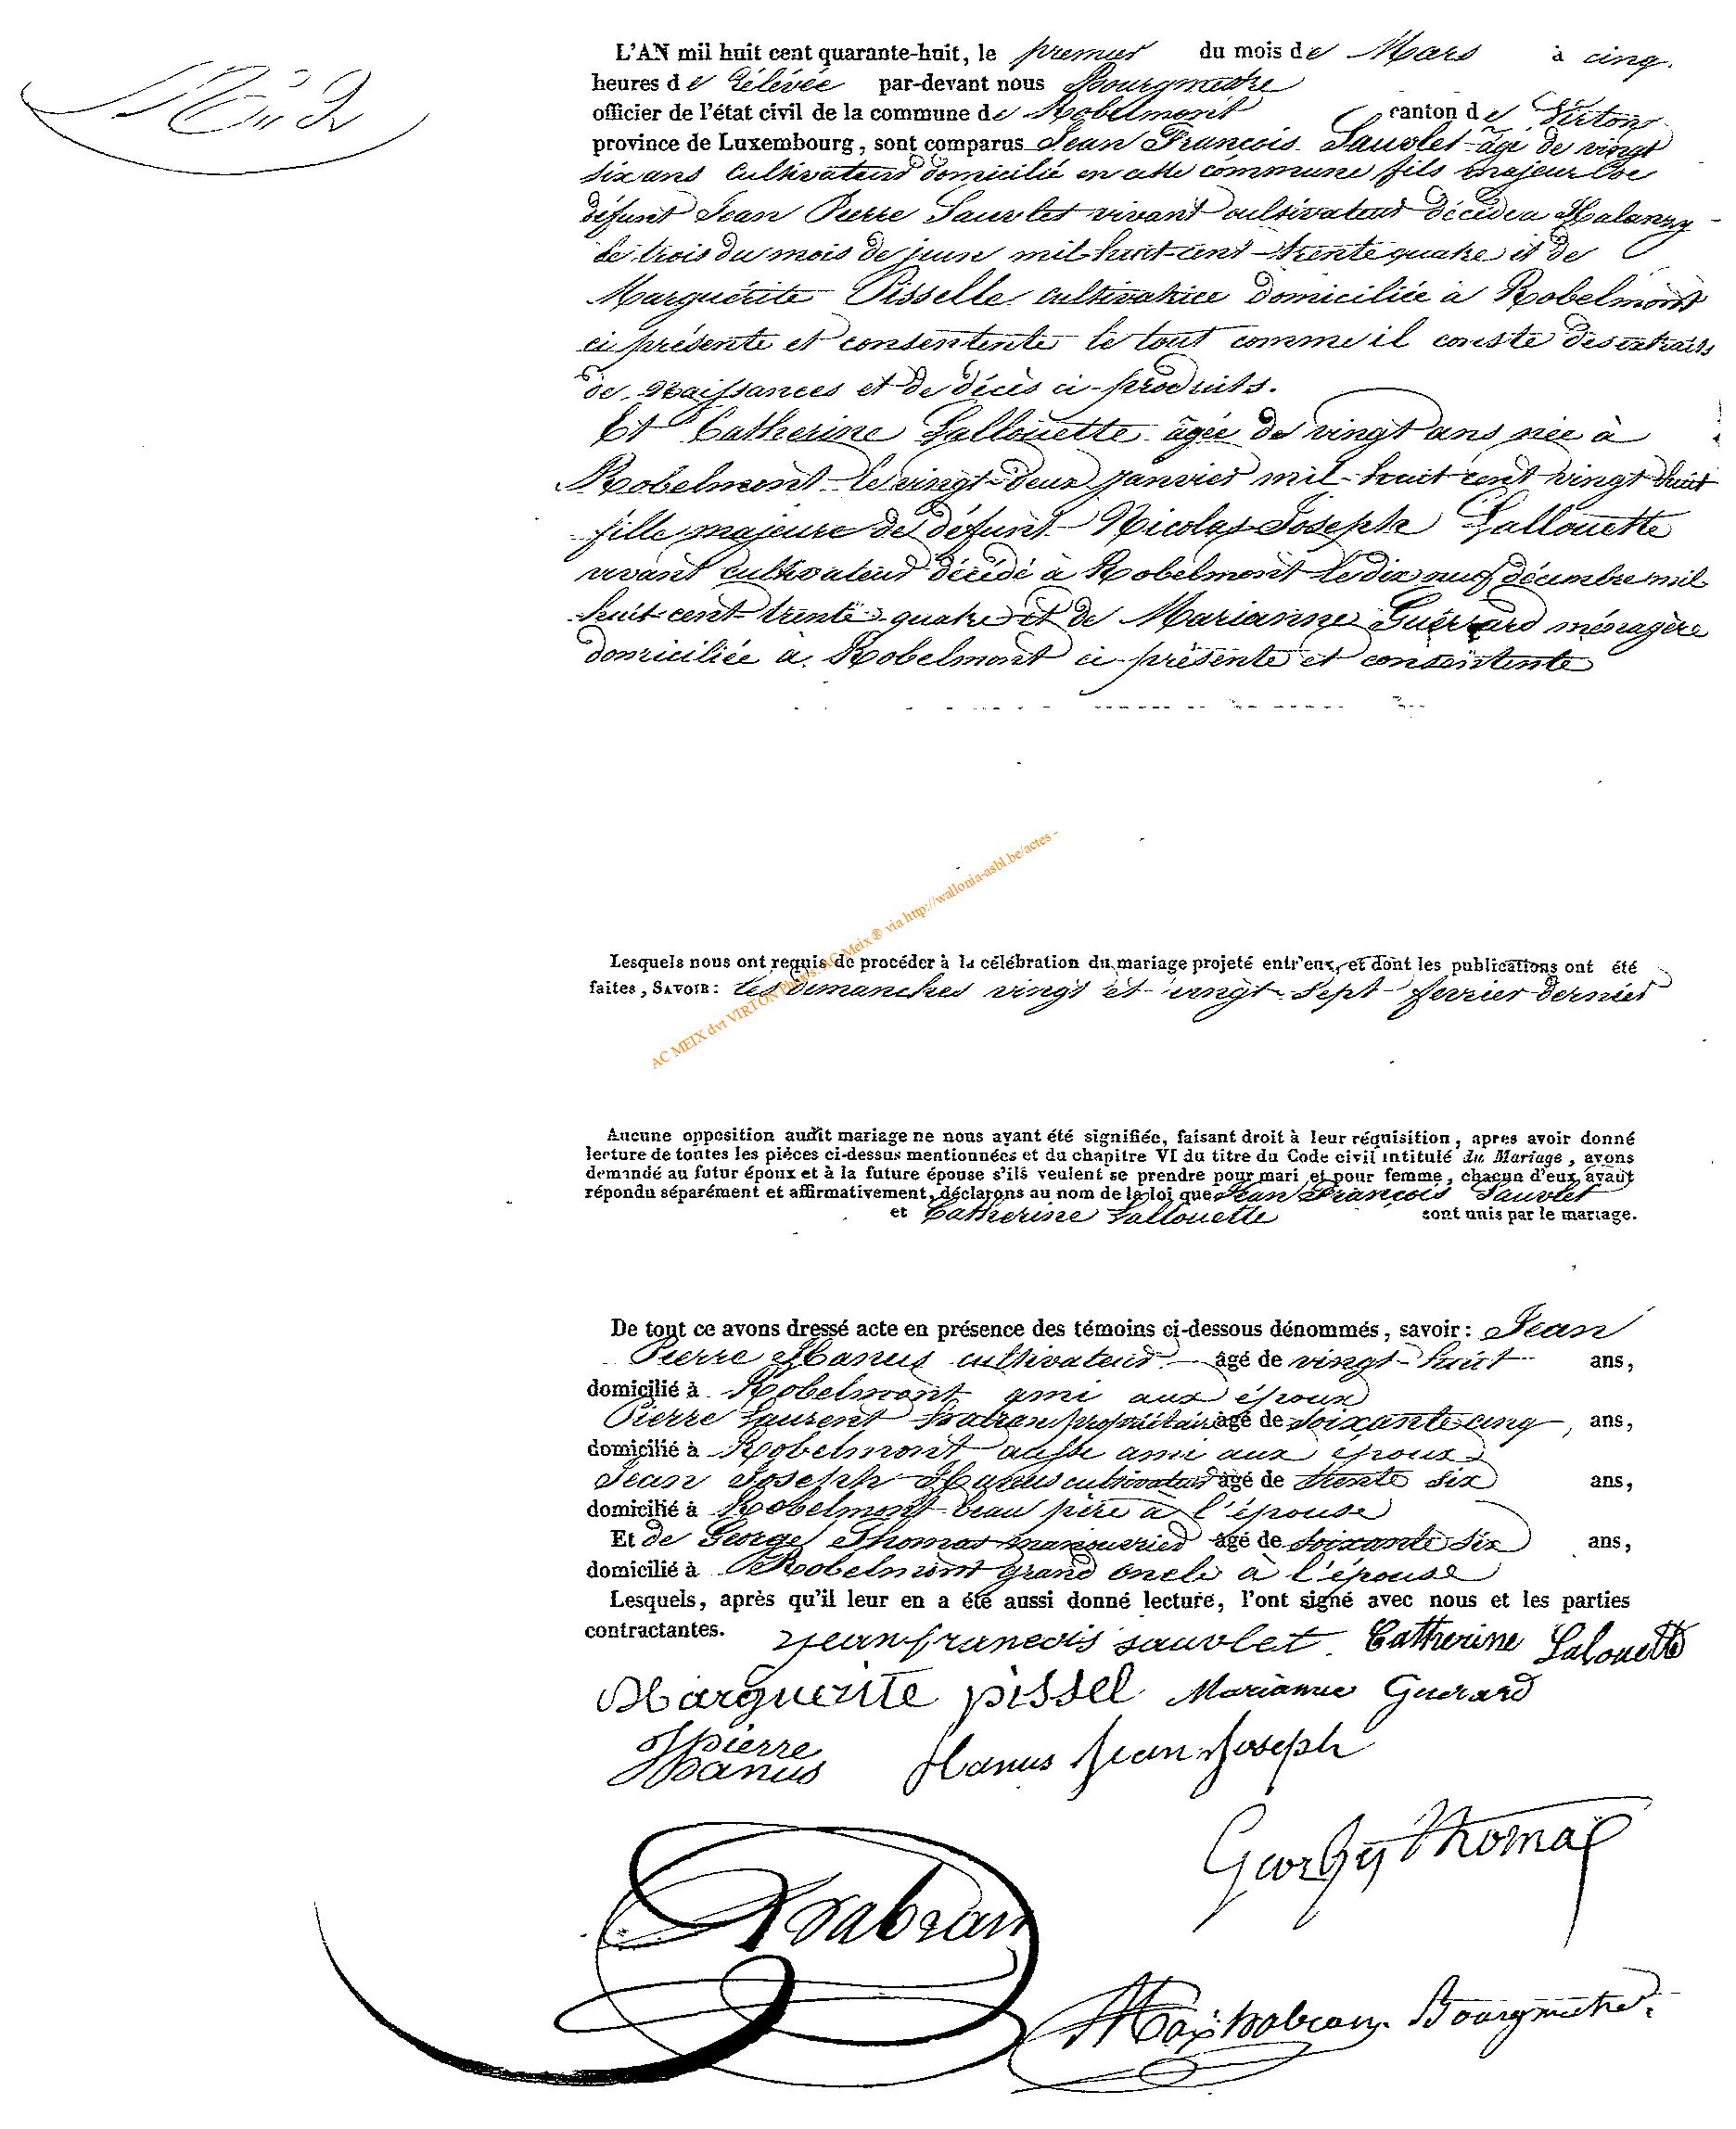 N.° 2
L'AN mil huit cent quarante-huit, le premier du mois de Mars à cinq
heures de rélévée par-devant nous Bourgmestre
officier de l'état civil de la commune de Robelmont canton de Virton
province de Luxembourg, sont comparus Jean François Sauvlet âgé de vingt
six ans Cultivateur domicilié en cette commune fils majeur de
défunt Jean Pierre Sauvlet vivant cultivateur décédé a Halanzy
le trois du mois de juin mil-huit-cent-trente quatre et de
Marguérite Pisselle cultivatrice domiciliée à Robelmont
ci présente et consentente le tout comme il conste des extraits
de Naissances et de décès ci-produits.
Et Catherine Lallouette âgée de vingt ans née à
Robelmont le vingt-deux janvier mil-huit cent vingt huit
fille majeure de défunt Nicolas Joseph Lallouette
vivant cultivateur décédé à Robelmont le dix neuf décembre mil
huit-cent-trente-quatre et de Marianne Guérrard ménagère
domiciliée à Robelmont ci-présente et consentente
AC MEIX dvt VIRTON Photos: AC Meix ® via http://wallonia-asbl.be/actes -
Lesquels nous ont requis de procéder à la célébration du mariage projeté entr'eux, et dont les publications ont été
faites, SAVOIR: Les dimanches vingt et vingt-sept fevrier dernier
Aucune opposition audit mariage ne nous ayant été signifiée, faisant droit à leur réquisition, apres avoir donné
lecture de toutes les pièces ci-dessus mentionnées et du chapitre VI du titre du Code civil intitulé du Mariage, avons
demandé au futur époux et à la future épouse s'ils veulent se prendre pour mari et pour femme, chacun d'eux ayant
répondu séparément et affirmativement, déclarons au nom de la loi que Jean François Sauvlet
et Catherine Lallouette sont unis par le mariage.
De tout ce avons dressé acte en présence des témoins ci-dessous dénommés, savoir: Jean
Pierre Hanus cultivateur âgé de vingt-huit ans,
domicilié à Robelmont ami aux époux
Pierre Laurent habran propriétaire âgé de soixante cinq ans,
domicilié à Robelmont aussi ami aux époux
Jean Joseph Hanus cultivateur âgé de trente six ans,
domicilié à Robelmont beau père à l'épouse
Et de George Thomas manouvrier âgé de soixante six ans,
domicilié à Robelmont grand oncle à l'épouse
Lesquels, après qu'il leur en a été aussi donné lecture, l'ont signé avec nous et les parties
contractantes. jean francois sauvlet Catherine Lalouette
Marguerite pissel Marianne Guerard
JPierre
Hanus Hanus Jean Joseph
Thomas
habran
habran Bourgmestre